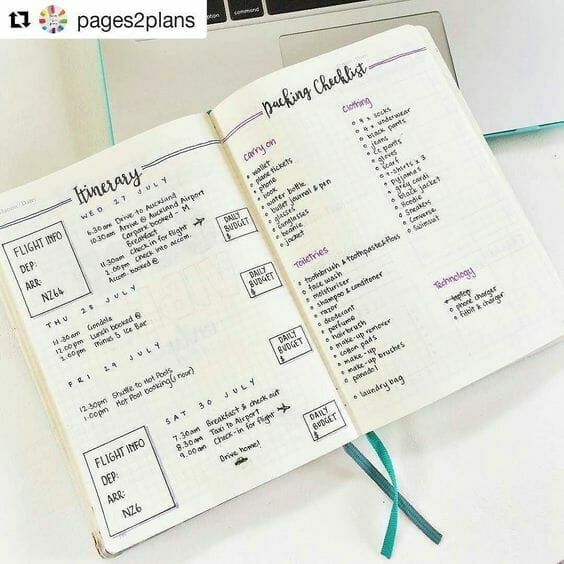 pages2plans
command
Itinerary
WED 27 JULY
FLIGHT INFO
DEP:
ARR:
NZ64
6:30am Drive to Auckland
10:30am Arrive @ Auckland Airport
Carpark booked - M
Breakfast
11:30am Check in for flight
2:00pm Check into accom.
Accom. booked @
DAILY
BUDGET
$
THU 28 JULY
11:30am Gondola
12:00pm Lunch booked @
2:00pm Minus 5 Ice Bar
DAILY
BUDGET
$
FRI 29 JULY
12:30pm Shuttle to Hot Pools
1:00pm Hot Pool booking (1 hour)
DAILY
BUDGET
$
SAT 30 JULY
7:30am Breakfast & check out
8:30am Taxi to Airport
9:00am Check-in for flight
Drive home!
DAILY
BUDGET
$
FLIGHT INFO
DEP:
ARR:
NZ6
Packing Checklist
Carry on
wallet
plane tickets
phone
book
water bottle
bullet journal & pen
glasses
sunglasses
beanie
jacket
Toiletries
toothbrush & toothpaste & floss
face wash
moisturiser
shampoo & conditioner
razor
deodorant
perfume
hairbrush
make-up remover
cotton pads
make-up
make-up brushes
panadol
laundry bag
Clothing
4 x socks
4 x underwear
black pants
jeans
pants
gloves
scarf
t-shirts x 3
pyjamas
grey cardi
black jacket
hoodie
sneakers
converse
swimsuit
Technology
laptop
phone charger
fitbit & charger